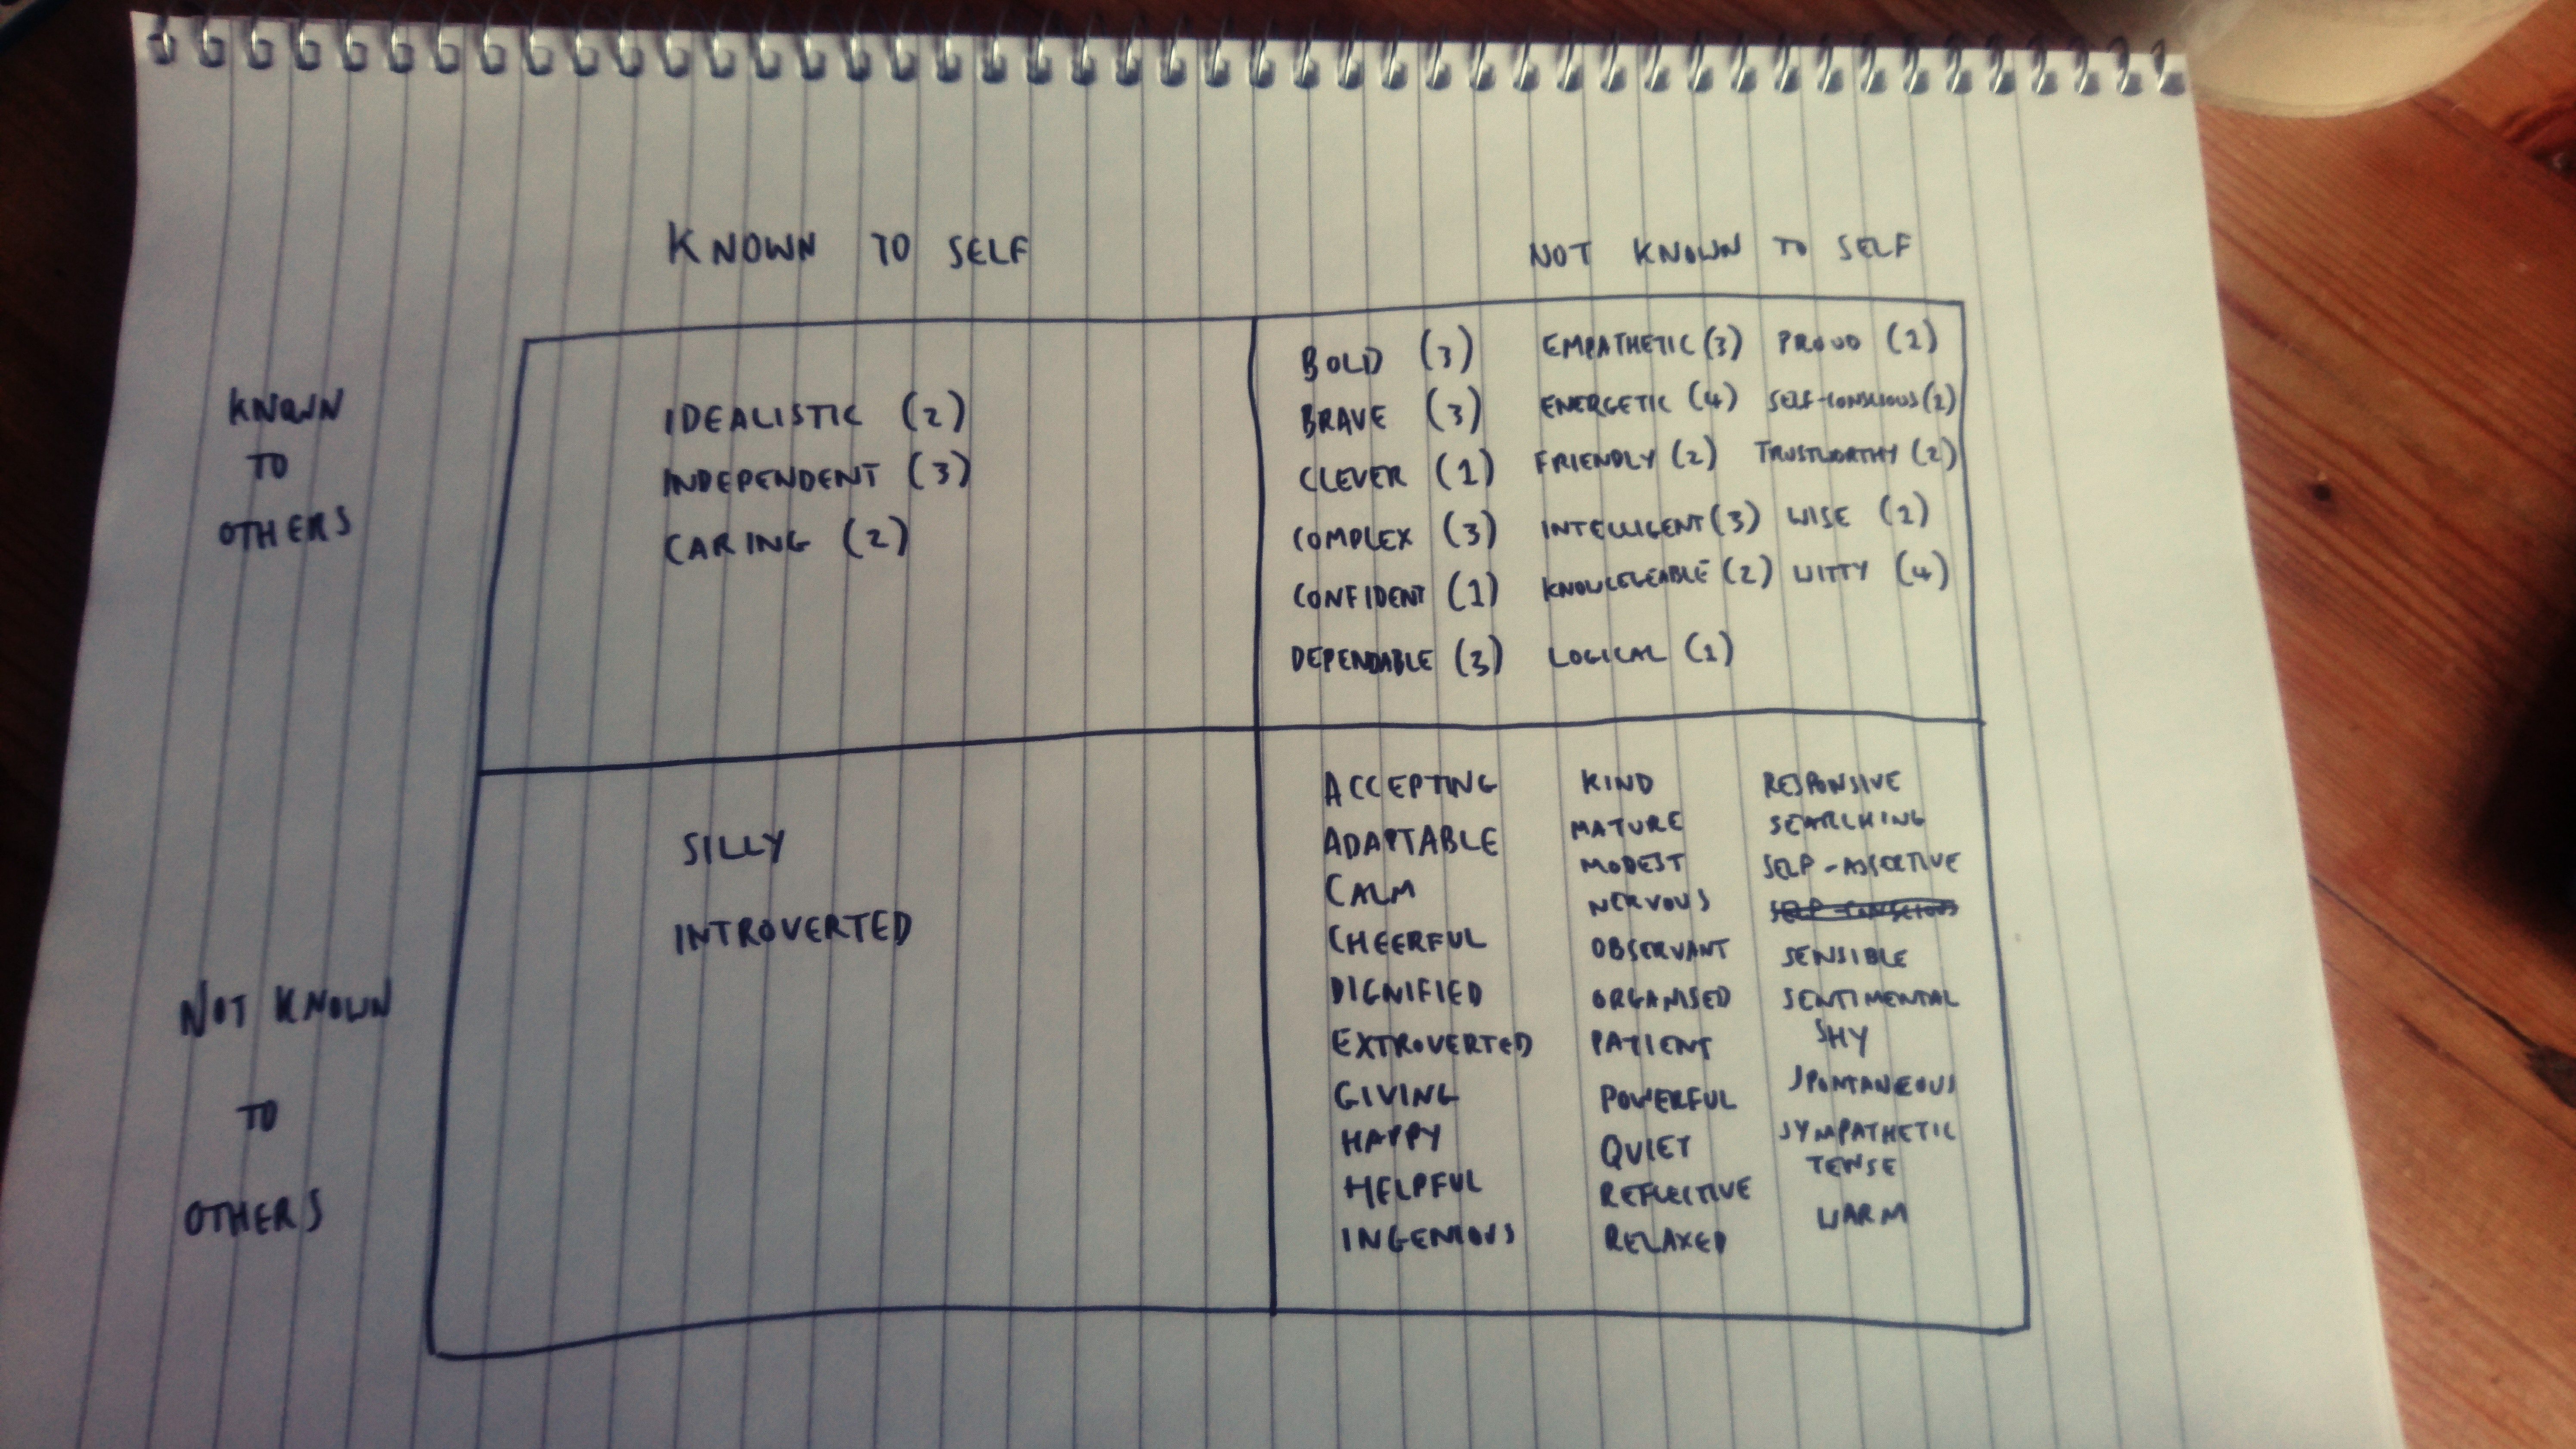 KNOWN TO SELF
NOT KNOWN TO SELF
KNOWN
TO
OTHERS
IDEALISTIC (2)
INDEPENDENT (3)
CARING (2)
BOLD (3)
BRAVE (3)
CLEVER (1)
COMPLEX (3)
CONFIDENT (1)
DEPENDABLE (3)
EMPATHETIC (3)
ENERGETIC (4)
FRIENDLY (2)
INTELLIGENT (3)
KNOWLEGEABLE (2)
LOGICAL (1)
PROUD (1)
SELF-CONSCIOUS (1)
TRUSTWORTHY (2)
WISE (1)
WITTY (4)
NOT KNOWN
TO
OTHERS
SILLY
INTROVERTED
ACCEPTING
ADAPTABLE
CALM
CHEERFUL
DIGNIFIED
EXTROVERTED
GIVING
HAPPY
HELPFUL
INGENIOUS
KIND
MATURE
MODEST
NERVOUS
OBSERVANT
ORGANISED
PATIENT
POWERFUL
QUIET
REFLECTIVE
RELAXED
RESPONSIVE
SEARCHING
SELF-ASSERTIVE
SELF-CONSCIOUS
SENSIBLE
SENTIMENTAL
SHY
SPONTANEOUS
SYMPATHETIC
TENSE
WARM